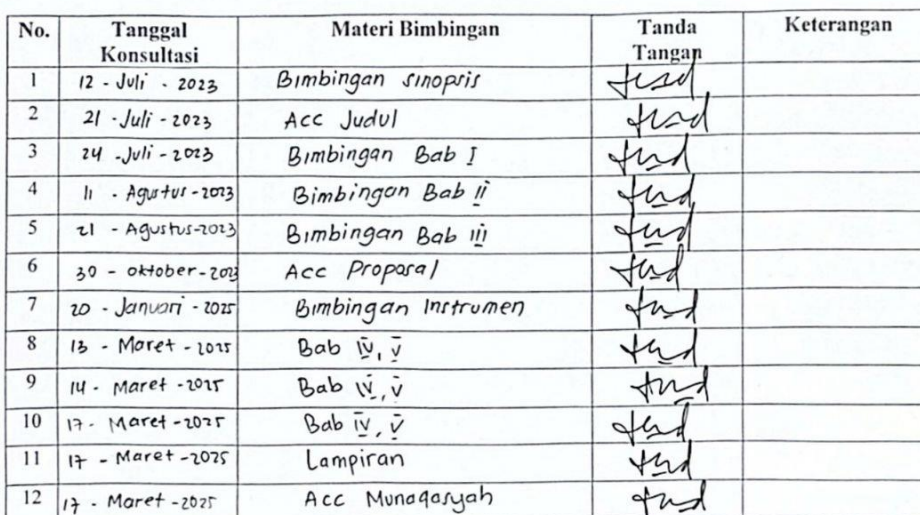 No. Tanggal Konsultasi Materi Bimbingan Tanda Tangan Keterangan
1 12 - Juli - 2023 Bimbingan sinopsis
2 21 - Juli - 2023 Acc Judul
3 24 - Juli - 2023 Bimbingan Bab I
4 11 - Agustus - 2023 Bimbingan Bab II
5 21 - Agustus - 2023 Bimbingan Bab III
6 30 - oktober - 2023 Acc Proposal
7 20 - Januari - 2025 Bimbingan Instrumen
8 13 - Maret - 2025 Bab IV, V
9 14 - Maret - 2025 Bab IV, V
10 17 - Maret - 2025 Bab IV, V
11 17 - Maret - 2025 Lampiran
12 17 - Maret - 2025 Acc Munaqasyah